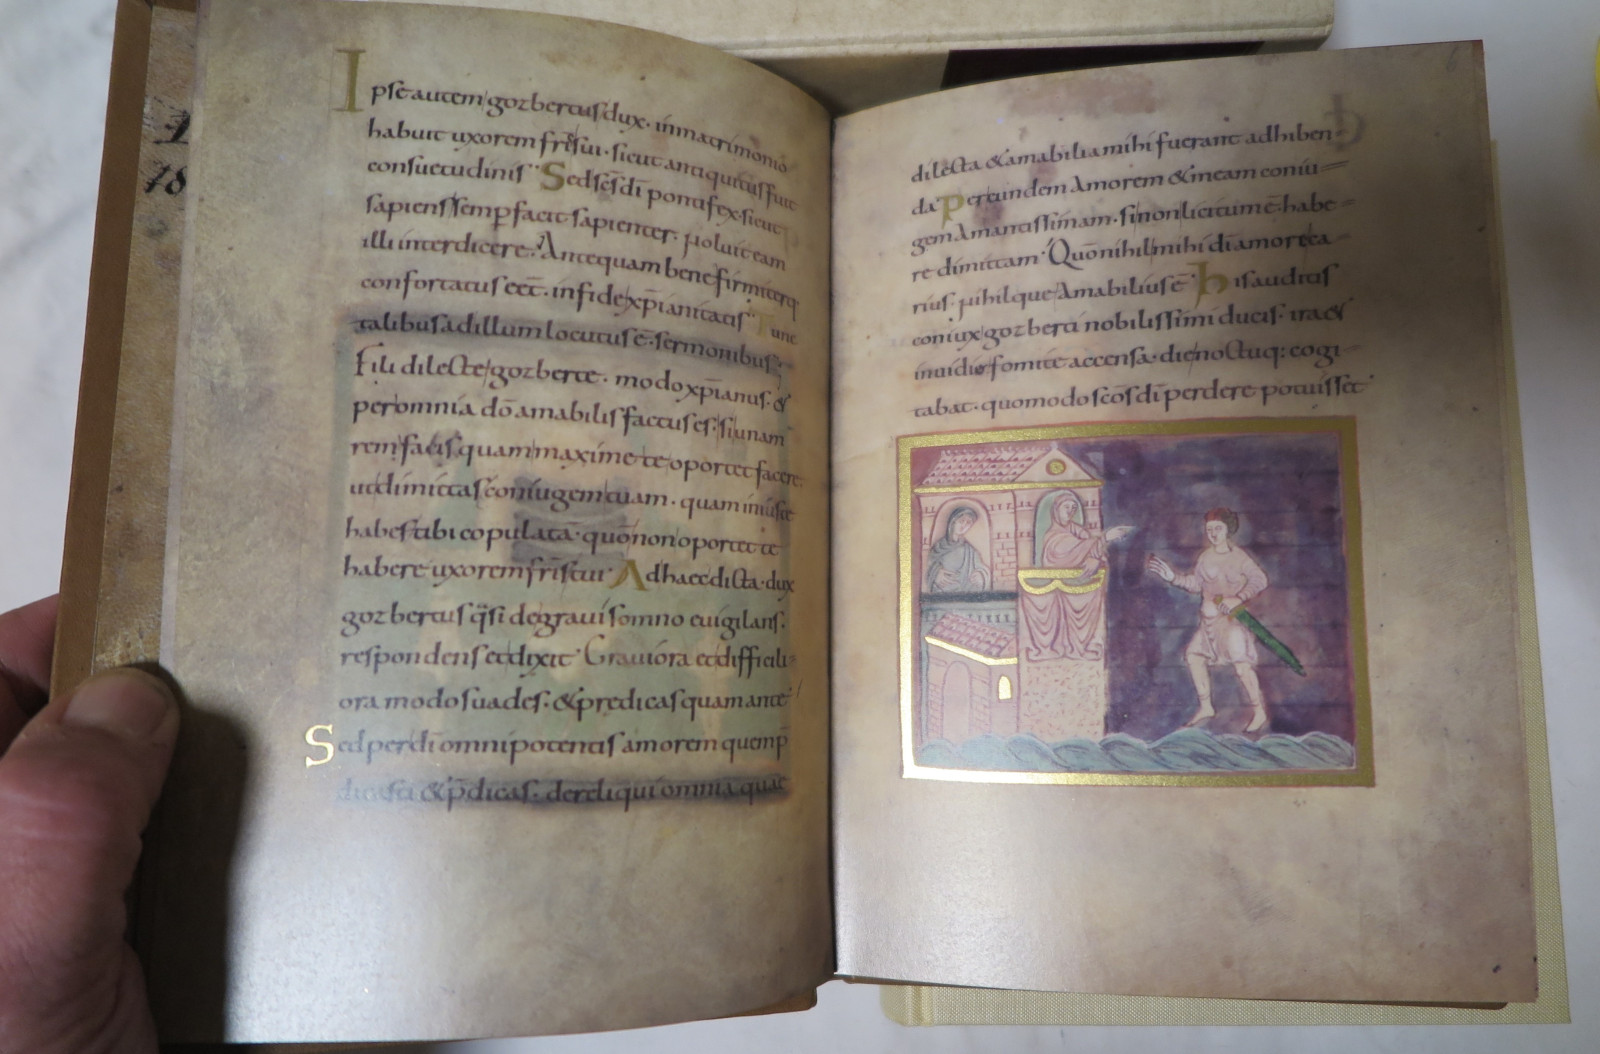 Ipse autem gozbertus dux. in matrimonio
habuit uxorem fr̄is sui. sicut antiquitus fuit
consuetudinis Sed sc̄s dī pontifex. sicut
sapiens semp̄ facit sapienter. noluit eam
illi interdicere. Antequam bene firmiterq
confortatus eēt. in fide xp̄ianitatis Tunc
talibus ad illum locutus ē. sermonibus;
Fili dilecte gozberte. modo xp̄ianus. &
per omnia dō amabilis factus es. si unam
rem facis quam maxime te oportet facere.
ut dimittas coniugem tuam. quam iniuste
habes tibi copulatā. quō non oportet te
habere uxorem fr̄is tui. Ad haec dicta. dux
gozbertus q̄si de gravi somno evigilans.
respondens et dixit Graviora et difficili-
ora modo suades. & predicas quam ante
Sed per dī omnipotentis amorem quem p̄
& p̄dicas. dereliqui omnia quae
dilecta & amabilia mihi fuerant adhiben-
da Per eundem amorem & meam coniu=
gem amantissimam. si non licitum ē habe-
re dimittam Quō nihil mihi dī amore ca-
rius. nihilque amabilius ē his auditis
coniux gozberti nobilissimi ducis. ira &
invidie fomite accensa. die noctuq: cogi-
tabat. quomodo sc̄os dī perdere potuisset